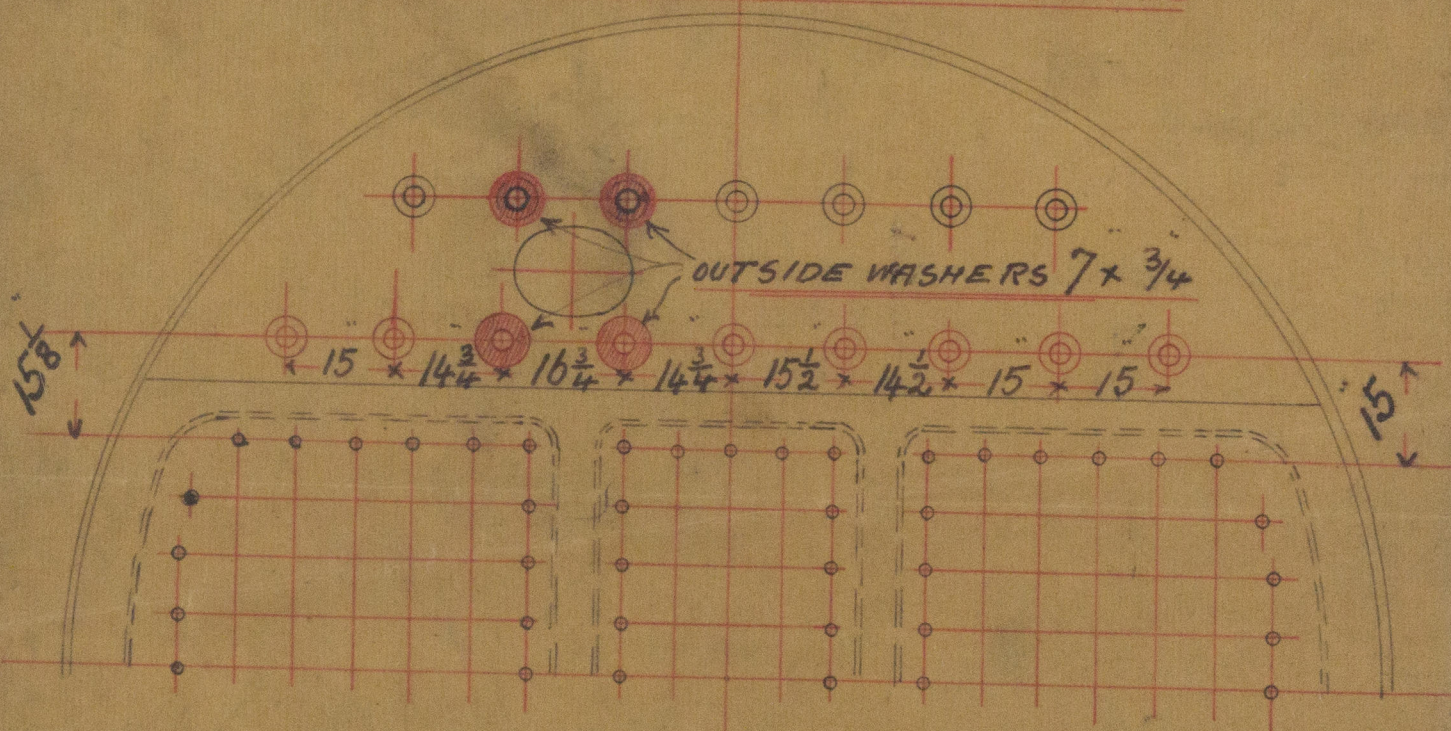 OUTSIDE WASHERS 7 x 3/4
15 14 3/4 16 3/4 14 3/4 15 1/2 14 1/2 15 15
15 1/8
15